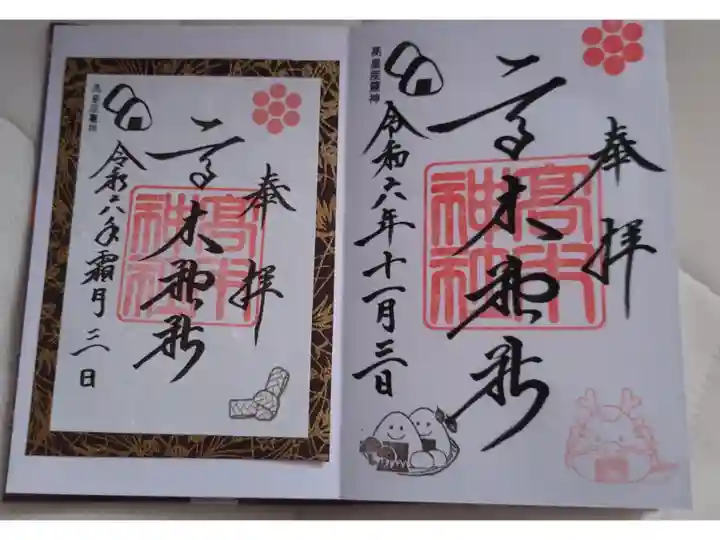 奉拝
高木神社
高木
神社
高皇産靈神
令和六年霜月三日
奉拝
高木神社
高木
神社
高皇産靈神
令和六年十一月三日